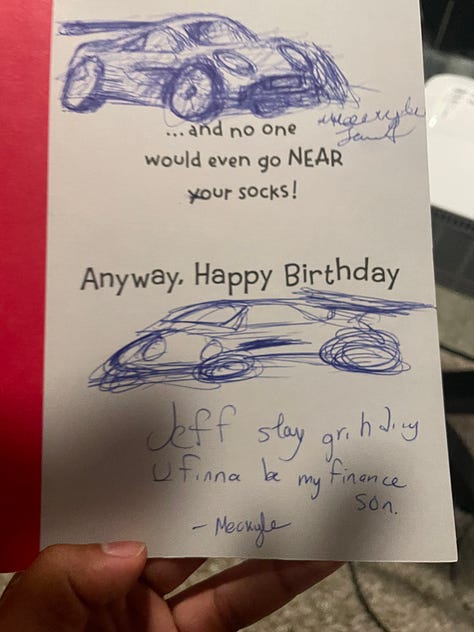 ...and no one
would even go NEAR
your socks!
Anyway, Happy Birthday
Jeff stay grinding
U finna be my finance
son.
- Meckyle